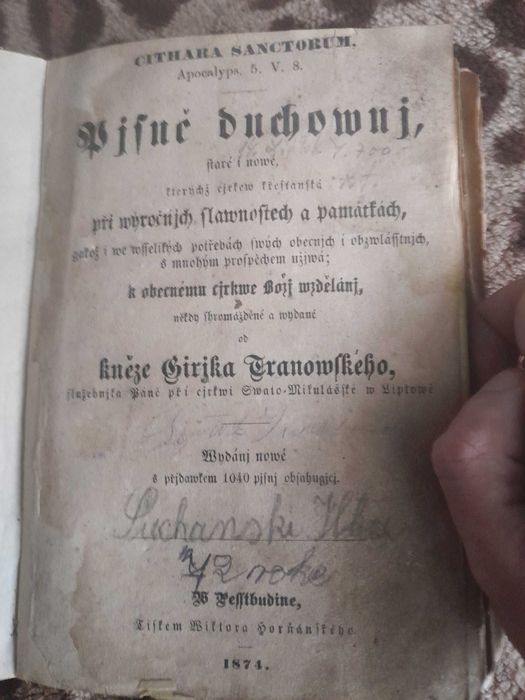 CITHARA SANCTORUM.
Apocalyps. 5. V. 8.
Pjsně duchownj,
staré i nowé,
kterýchž cjrkew křesťanská
při wýročnjch slawnostech a památkách,
gakož i we wsselikých potřebách swých obecnjch i obzwlásstnjch,
s mnohým prospěchem užjwá;
k obecnému cjrkwe Božj wzdělánj,
někdy shromážděné a wydané
od
kněze Girjka Tranowského,
služebnjka Páně při cjrkwi Swato-Mikulášské w Liptowě
Wydánj nowé
s přjdawkem 1040 pjsnj obsahugjcj.
Suchanski
72 roke
W Pesstbudjne,
Tiskem Wiktora Horňánského
1874.